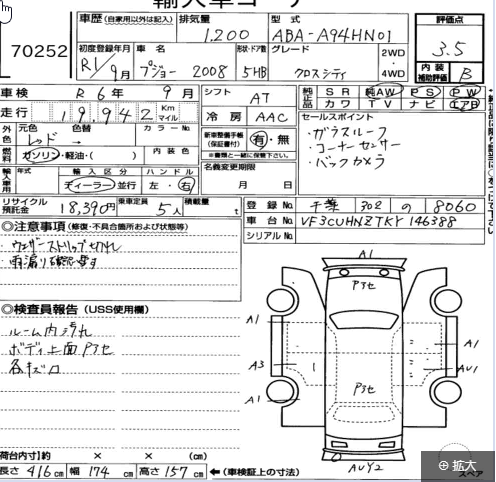 輸入車コーナー
70252
車歴 (自家用以外は記入) 排気量 型式 評価点
1,200 ABA-A94HN01 3.5
初度登録年月 車名 形状・ドア数 グレード 2WD 4WD
R1/9月 プジョー 2008 5HB クロスシティ
内装補助評価 B
車検 R6年9月 シフト AT 純正 SR 純AW PS PW
カワ TV ナビ エアB
走行 19,942 Km マイル 冷房 AAC
セールスポイント
・ガラスルーフ
・コーナーセンサー
・バックカメラ
外色 元色 色替 カラーNo
レッド →
新車整備手帳(保証書付) 有・無
※書類と一緒に保管下さい。
燃料 ガソリン・軽油・( ) 内装色
名義変更期限
月 日
輸入車用 年式 輸入区分 ハンドル
ディーラー 並行 左・右
リサイクル預託金 18,390円 乗車定員 5人 積載量 t
登録No 千葉 302 の 8060
車台No VF3CUHNZTKY146388
シリアルNo
◎注意事項 (修復・不具合箇所および状態等)
・ウェザーストリップ切れ
・雨漏り
◎検査員報告 (USS使用欄)
ルーム内汚れ
ボディ上面Pアセ
各キズ凹
A1
Pアセ
A1 A1
A3 Pアセ AU1
A1
AUY2
スペア
荷台内寸 × × (cm)
長さ 416 cm 幅 174 cm 高さ 157 cm ←(車検証上の寸法)
拡大